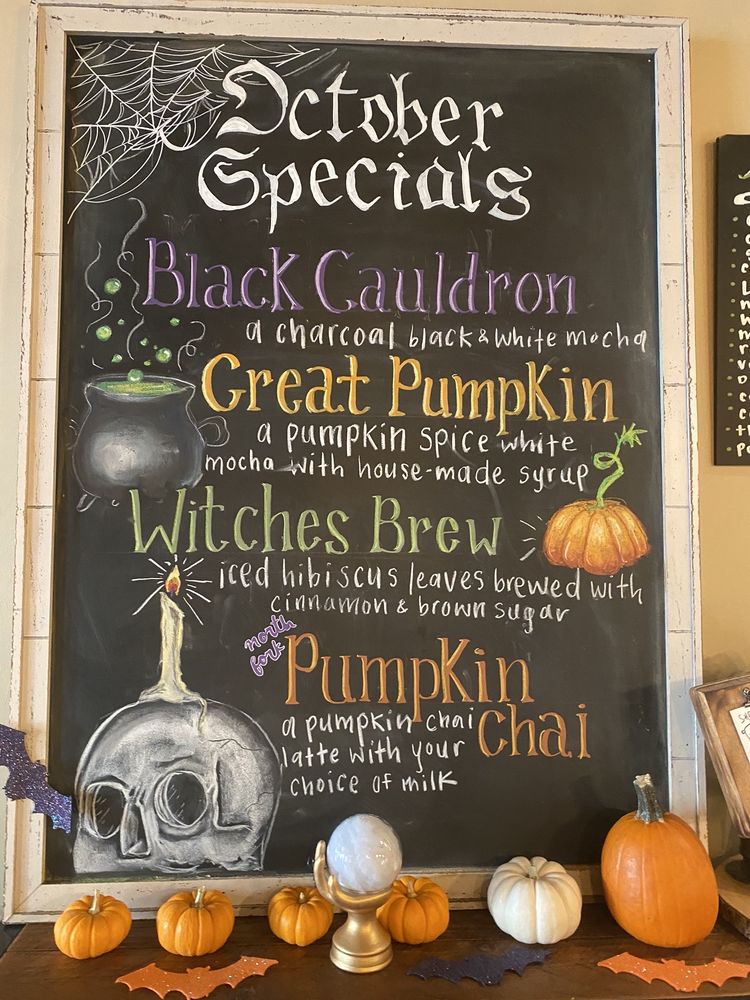 October
Specials
Black Cauldron
a charcoal black & white mocha
Great Pumpkin
a pumpkin spice white
mocha with house-made syrup
Witches Brew
iced hibiscus leaves brewed with
cinnamon & brown sugar
north
fork
Pumpkin
Chai
a pumpkin chai
latte with your
choice of milk